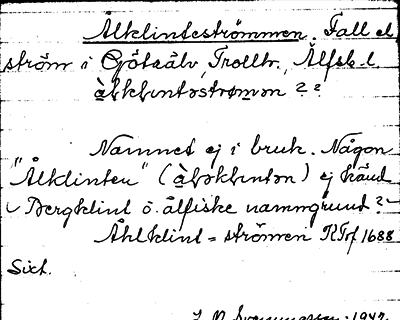 Ålklinteströmmen. Fall el
ström i Götaälv, Trollh., Älfsb. l.
àlkLintostrømon ? ?
Namnet ej i bruk. Någon
"Ålklinten" (àlokLinton) ej känd
Bergklint ö. älfiske namngrund?
Åhlklint = strömmen RTrf 1688
Sixt.
1947